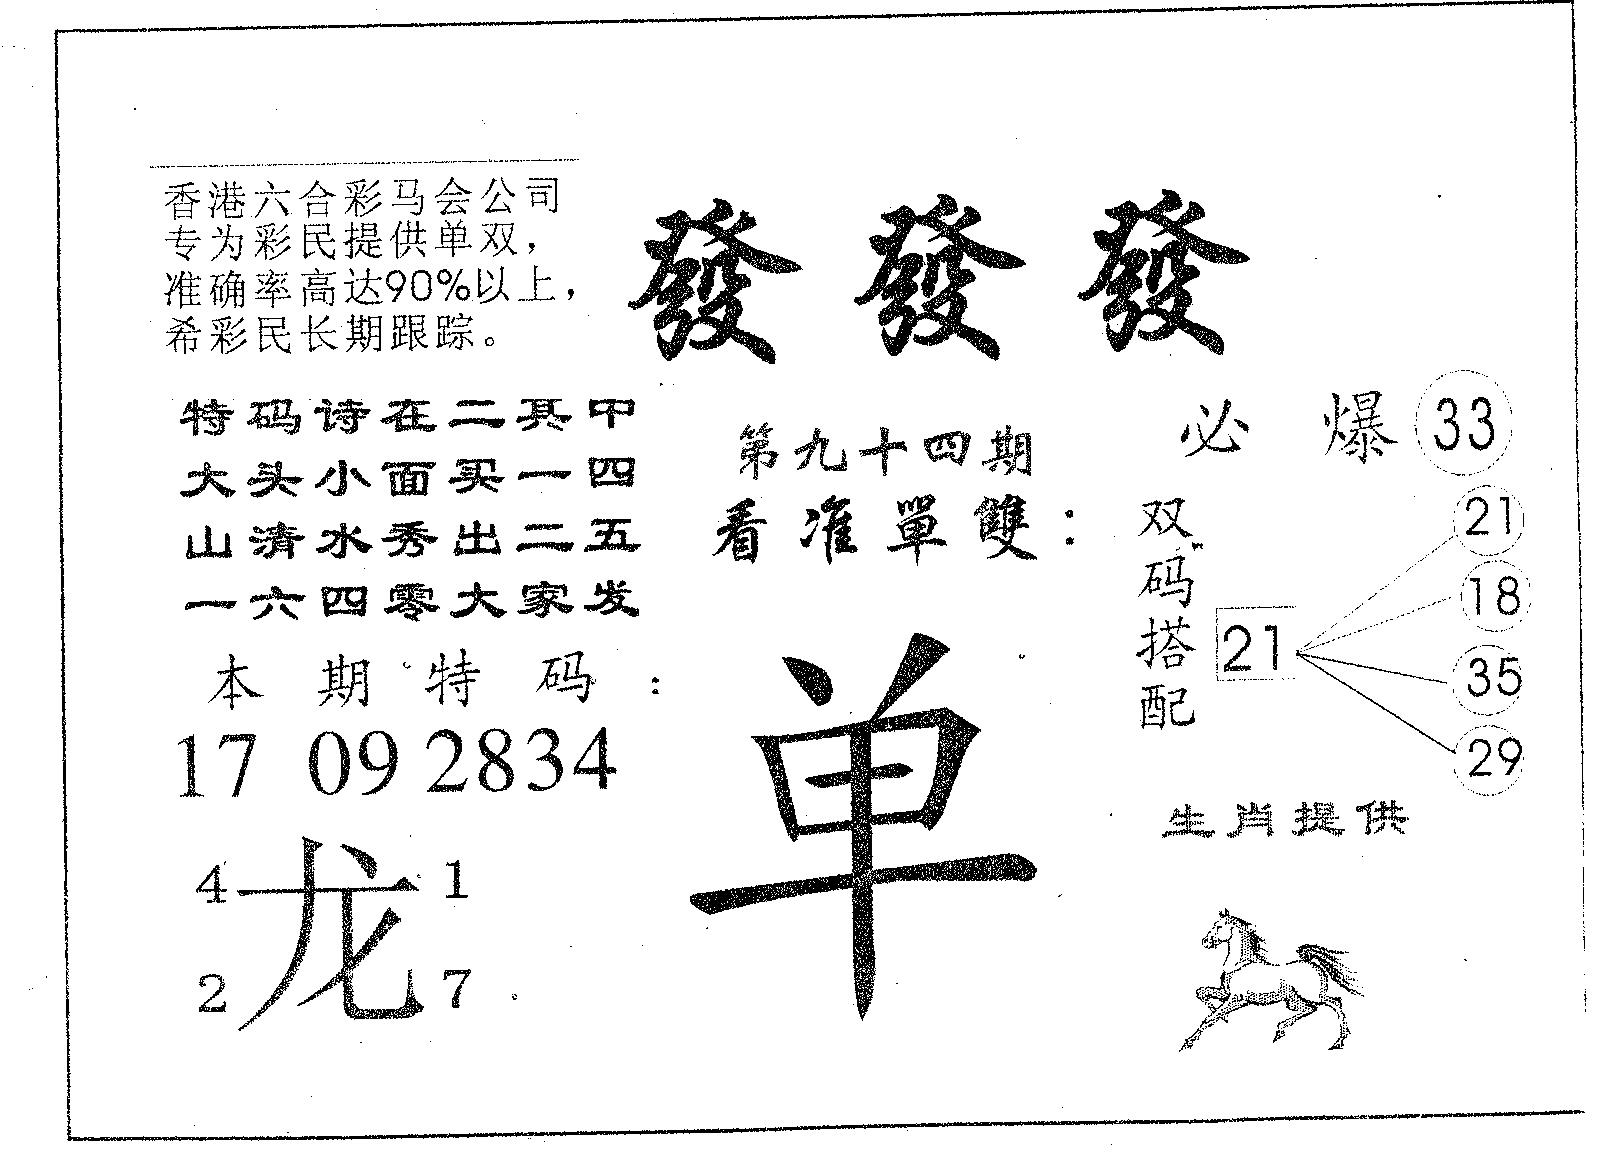 香港六合彩马会公司
专为彩民提供单双，
准确率高达90%以上，
希彩民长期跟踪。
發發發
特码诗在二其中
大头小面买一四
山清水秀出二五
一六四零大家发
第九十四期
看准單雙：
必爆33
双码搭配
21
21
18
35
29
本期特码：
17 09 2834
单
生肖提供
4 1
龙
2 7